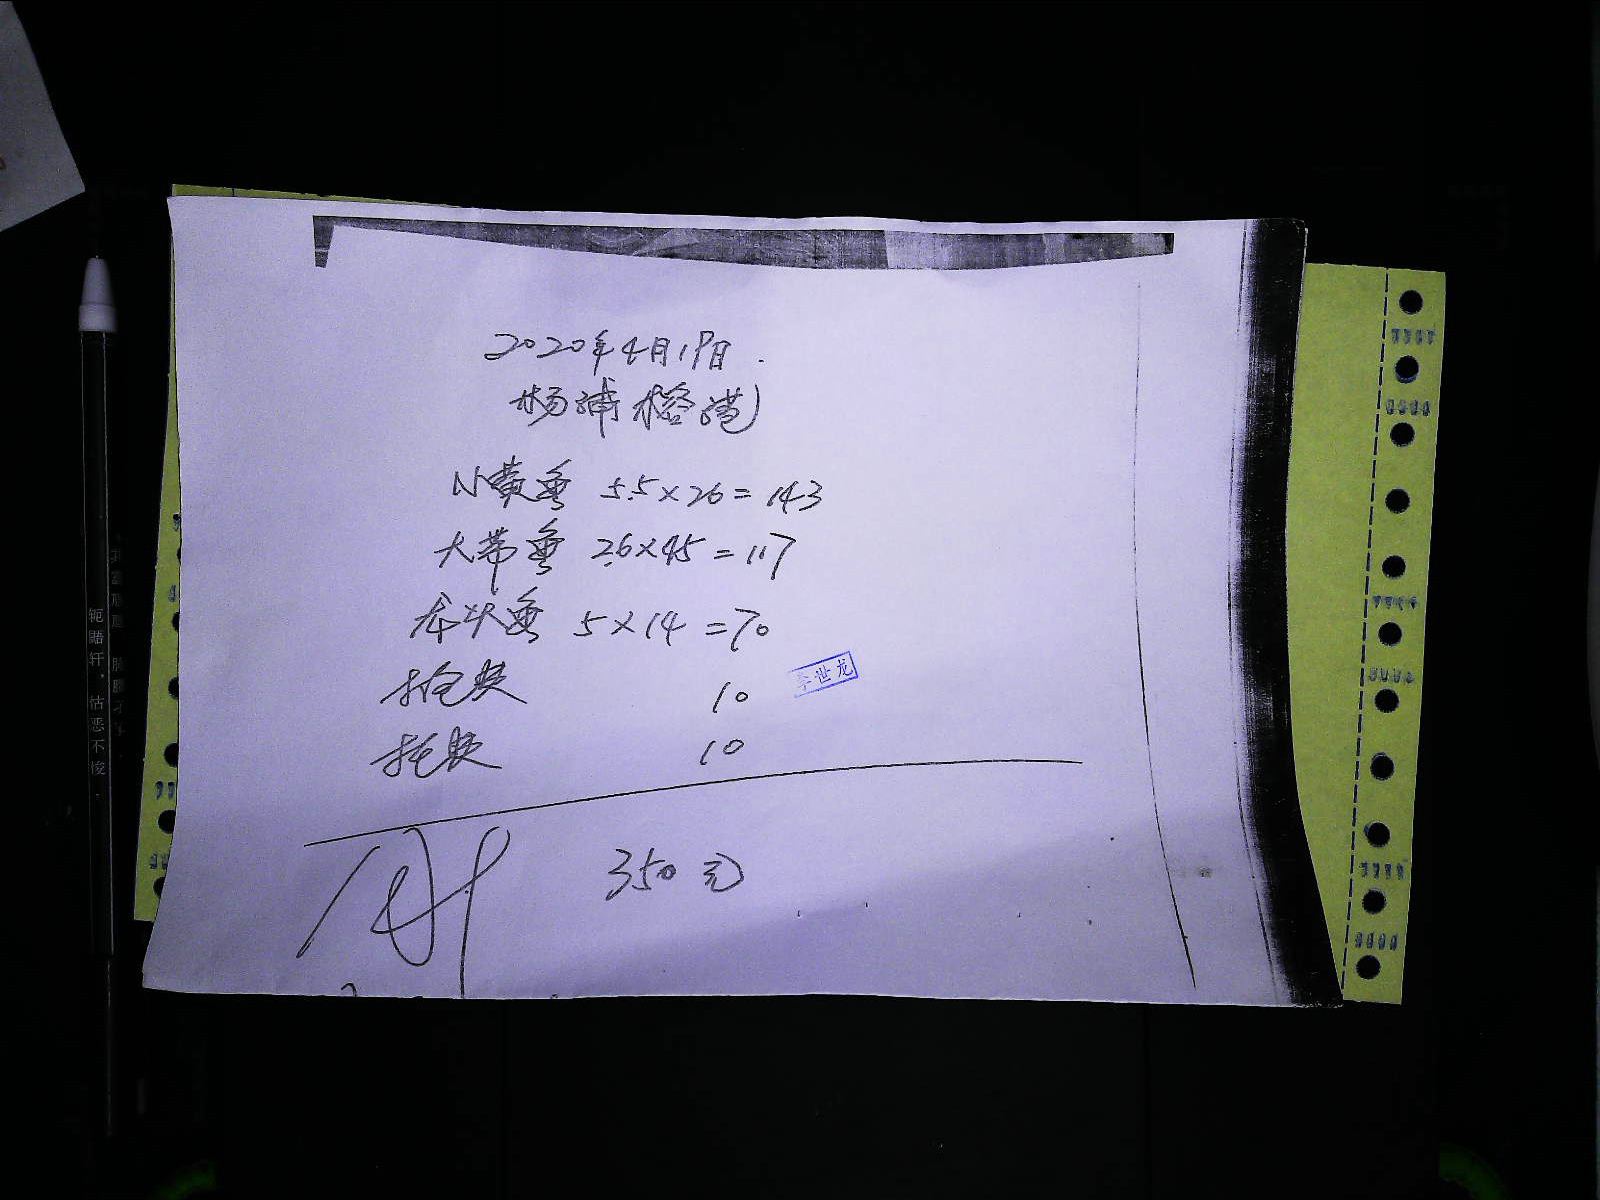 2020年4月19日.
杨浦榕港
小黄鱼 5.5×26=143
大带鱼 2.6×45=117
龙头鱼 5×14=70
10
李世龙
托费 10
350元